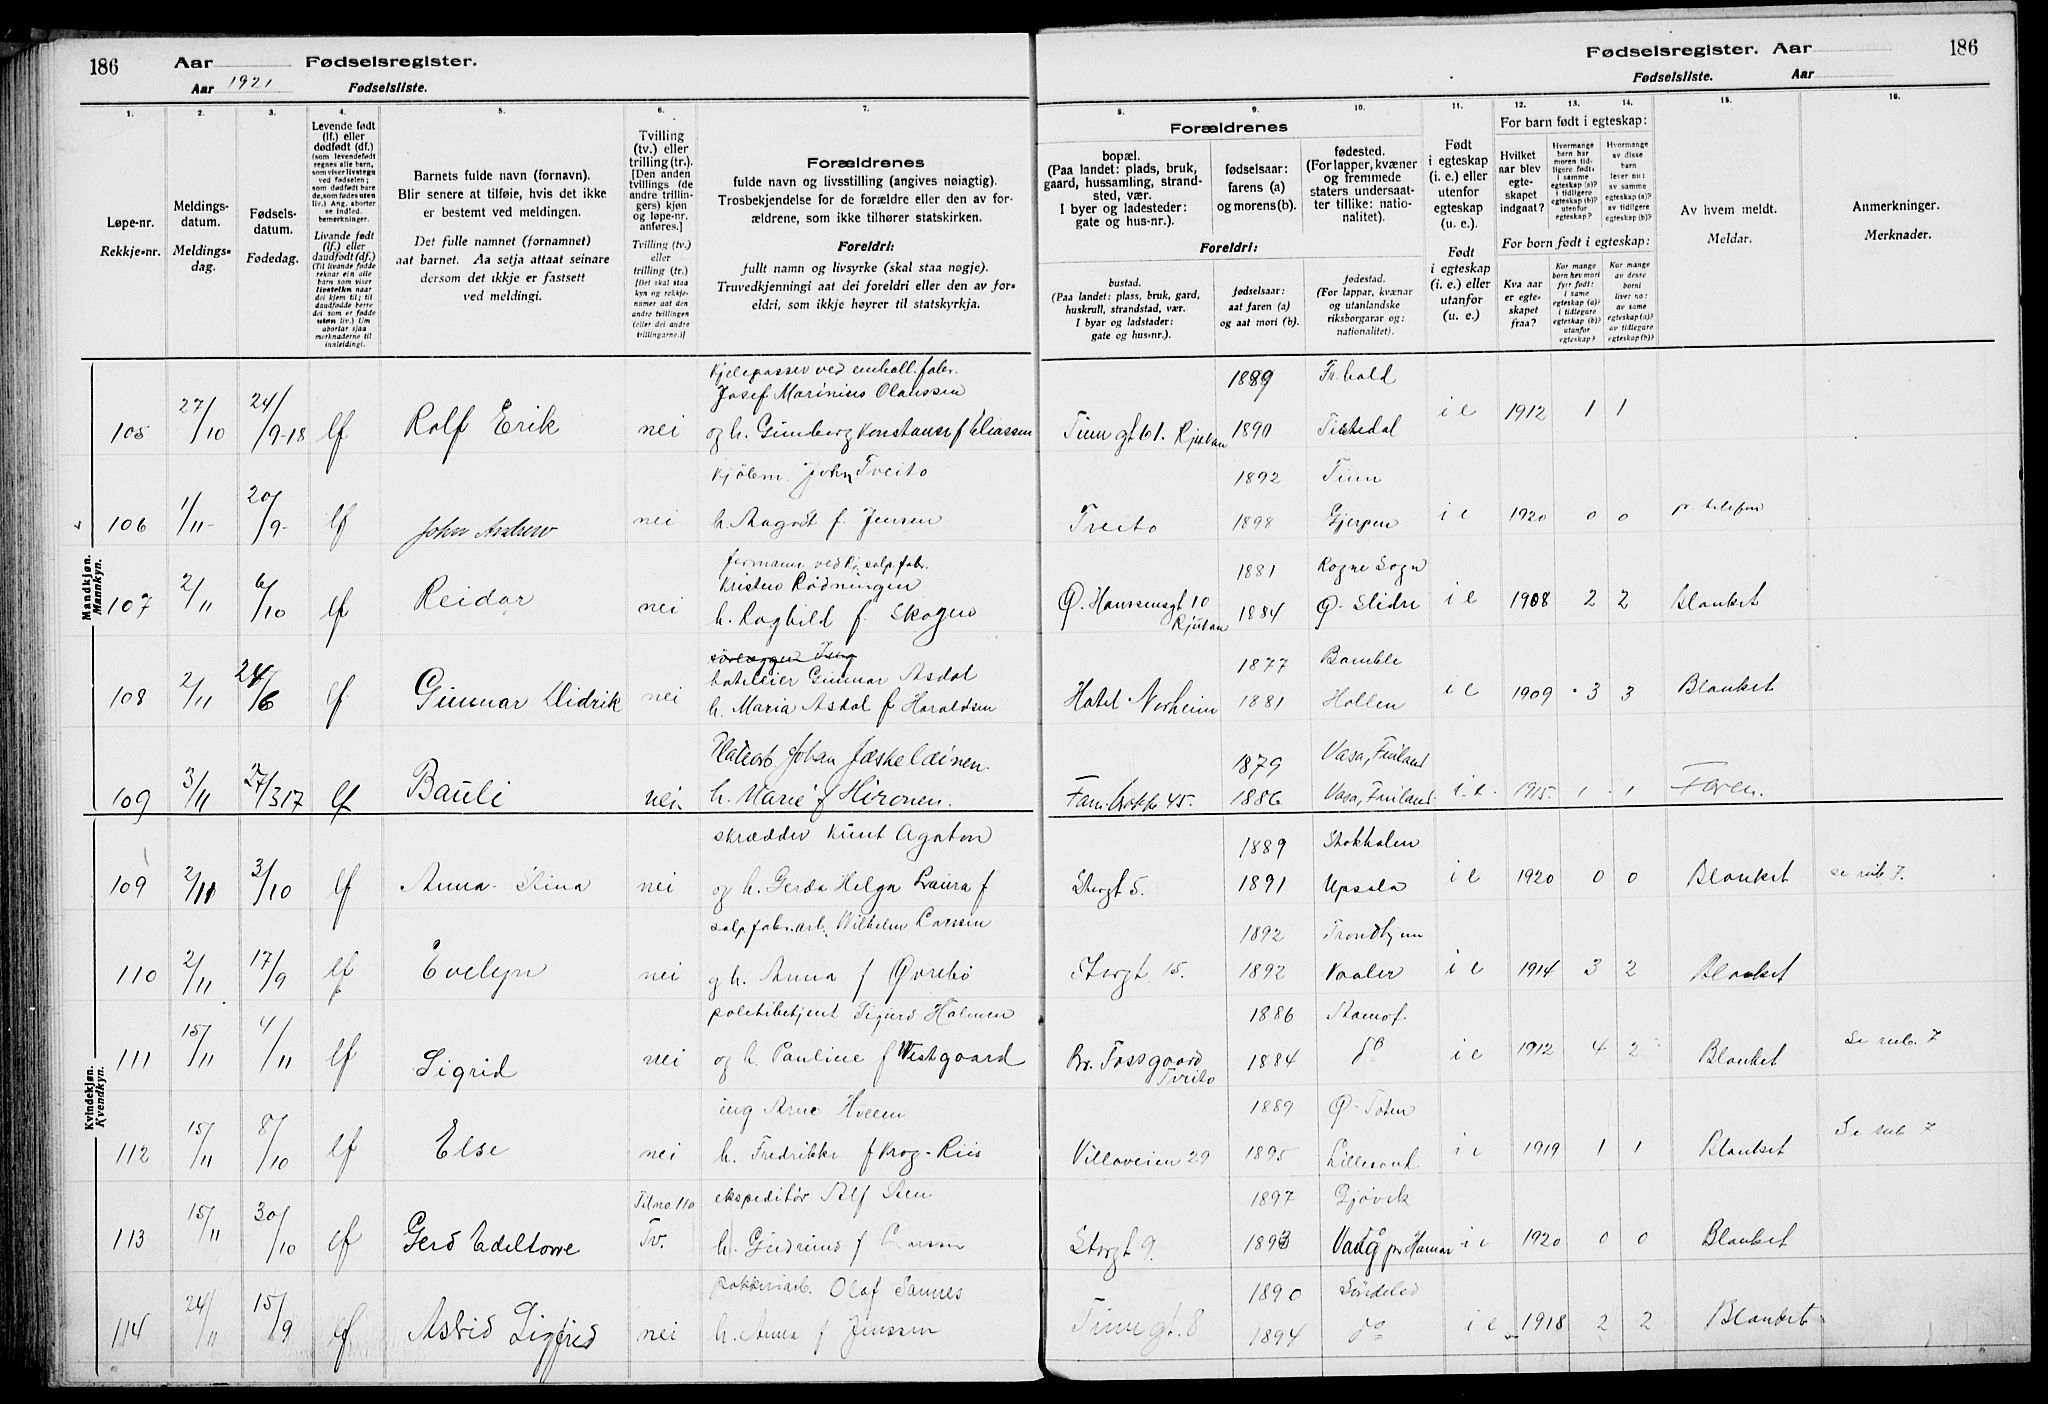 186 Aar Fødselsregister.
Aar 1921 Fødselsliste.
Fødselsregister. Aar 186
Fødselsliste. Aar
1. 2. 3. 4. 5. 6. 7.
Løpe-nr.
Rekkje-nr.
Meldings-
datum.
Meldings-
dag.
Fødsels-
datum.
Fødedag.
Levende født
(lf.) eller
dødfødt (df.)
(som levendefødt
regnes alle barn,
som viser livstegn
ved fødselen;
som dødfødt bare
de, som fødes uten
liv.) Ang. aborter
se indled.
bemerkninger.
Livande født
(lf.) eller
daudfødt (df.)
(Til livande fødde
reknar ein alle
barn som viser
livsteikn naar
dei kjem til; til
daudfødde berre
dei som er fødde
uten liv.) Um
abortar sjaa
merknaderne til
innleidingi.
Barnets fulde navn (fornavn).
Blir senere at tilføie, hvis det ikke
er bestemt ved meldingen.
Det fulle namnet (fornamnet)
aat barnet. Aa setja attaat seinare
dersom det ikkje er fastsett
ved meldingi.
Tvilling
(tv.) eller
trilling (tr.).
[Den anden
tvillings (de
andre trillin-
gers) kjøn
og løpe-nr.
anføres.]
Tvilling (tv.)
eller
trilling (tr.)
[Det skal staa
kyn og rekkje-
numer aat den
andre tvillingen
(eller dei andre
trillingarne.)]
Forældrenes
fulde navn og livsstilling (angives nøiagtig).
Trosbekjendelse for de forældre eller den av for-
ældrene, som ikke tilhører statskirken.
Foreldri:
fullt namn og livsyrke (skal staa nøgje).
Truvedkjenningi aat dei foreldri eller den av for-
eldri, som ikkje høyrer til statskyrkja.
8. 9. 10. 11. 12. 13. 14. 15. 16.
Forældrenes
bopæl.
(Paa landet: plads, bruk,
gaard, hussamling, strand-
sted, vær.
I byer og ladesteder:
gate og hus-nr.).
fødselsaar:
farens (a)
og morens (b).
fødested.
(For lapper, kvæner
og fremmede
staters undersaat-
ter tillike: natio-
nalitet).
Foreldri:
bustad.
(Paa landet: plass, bruk, gard,
huskrull, strandstad, vær.
I byar og ladstader:
gate og hus-nr.).
fødselsaar:
aat faren (a)
og aat mori (b).
fødestad.
(For lappar, kvænar
og utanlandske
riksborgarar og:
nationalitet).
Født
i egteskap
(i. e.) eller
utenfor
egteskap
(u. e.).
Født
i egteskap
(i. e.) eller
utanfor
(u. e.).
For barn født i egteskap:
Hvilket
aar blev
egte-
skapet
indgaat?
Hvormange
barn har
moren tid-
ligere født:
i samme
egteskap (a)?
i tidligere
egteskap (b)?
utenfor
egteskap?
Hvormange
av disse
barn
lever nu:
av samme
egteskap (a)?
av tidligere
egteskap (b)?
For born født i egteskap:
Kva aar
er egte-
skapet
fraa?
Kor mange
born hev mori
fyrr født:
i same
egteskap (a)?
i tidlegare
egteskap (b)?
utanfor
egteskap?
Kor mange
av desse
borni
liver no:
av same
egteskap (a)?
av tidlegare
egteskap (b)?
Av hvem meldt.
Meldar.
Anmerkninger.
Merknader.
Mandkjøn.
Mannkyn.
Josef Marinius Olaussen 1889 Fr.hald
105 27/10 24/9-18 lf Rolf Erik nei og h. Gunborg Konstanse f Eliassen Tinn gt 61. Rjukan 1890 Tistedal i e 1912 1 1
John Tveito 1892 Tinn
106 1/11 20/9 lf John Andrew nei h. Aagot f. Jensen Tveito 1898 Gjerpen i e 1920 0 0 pr. telefon
formann ved Rj. salp.fabr. 1881 Rogne Sogn
Kristen Rødningen
107 2/11 6/10 lf Reidar nei h. Raghild f. Skogen Ø. Hanssensgt 10 Rjukan 1884 Ø. Slidre i e 1908 2 2 Blanket
hoteleier Gunnar Asdal 1877 Bamble
108 2/11 24/6 lf Gunnar Didrik nei h. Maria Asdal f Haraldsen Hotel Norheim 1881 Hollen i e 1909 3 3 Blanket
Johan Jæskelæinen 1879 Vasa, Finland
109 3/11 27/3 17 lf Pauli nei. h. Marie f Hironen. Fam.brakke 45. 1886 Vasa, Finland i. e. 1915. 1 1 Faren.
Kvindekjøn.
Kvendkyn.
skrædder Knut Agaton 1889 Stokholm
109 2/11 3/10 lf Anna-Stina nei og h. Gerda Helga Laura f Storgt 5. 1891 Upsala i e 1920 0 0 Blanket se rub 7.
salp.fabr.arb. Wilhelm Larsen 1892 Trondhjem
110 2/11 17/9 lf Evelyn nei og h. Anna f Øvrebø Storgt 15. 1892 Vaaler i e 1914 3 2 Blanket
politibetjent Sigurd Holmen 1886 Aamot.
111 15/11 4/11 lf Sigrid nei og h. Pauline f Westgaard Br. Fossgaard Tveito 1884 do i e 1912 4 2 Blanket Se rub. 7
ing Arne Hveem 1889 Ø-Toten
112 15/11 8/10 lf Else nei h. Fredrikke f Krog-Riis Villaveien 29 1895 Lillesand i e 1919 1 1 Blanket Se rub 7
Til no. 110 ekspeditør Alf Sten 1897 Gjøvik
113 15/11 30/10 lf Gerd Edeltorre Tv. h. Gudrund f Larsen Storgt 9. 1893 Vang pr Hamar i e 1920 0 0 Blanket
Olaf Sannes 1890 Søndeled
114 24/11 15/9 lf Astrid Sigfred nei h. Anna f Jenssen Tinnegt. 8 1894 do i e 1918 2 2 Blanket